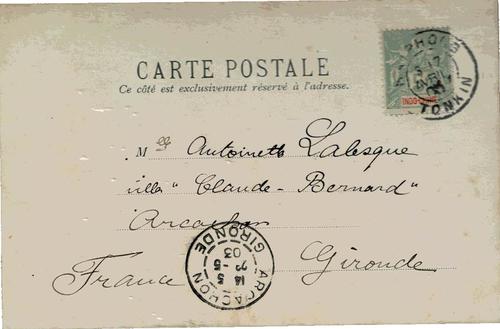 CARTE POSTALE
Ce côté est exclusivement réservé à l'adresse.
INDO-CHINE
TONKIN
Mlle Antoinette Lalesque
villa "Claude-Bernard"
Arcachon
Gironde
France
ARCACHON
GIRONDE
5
03